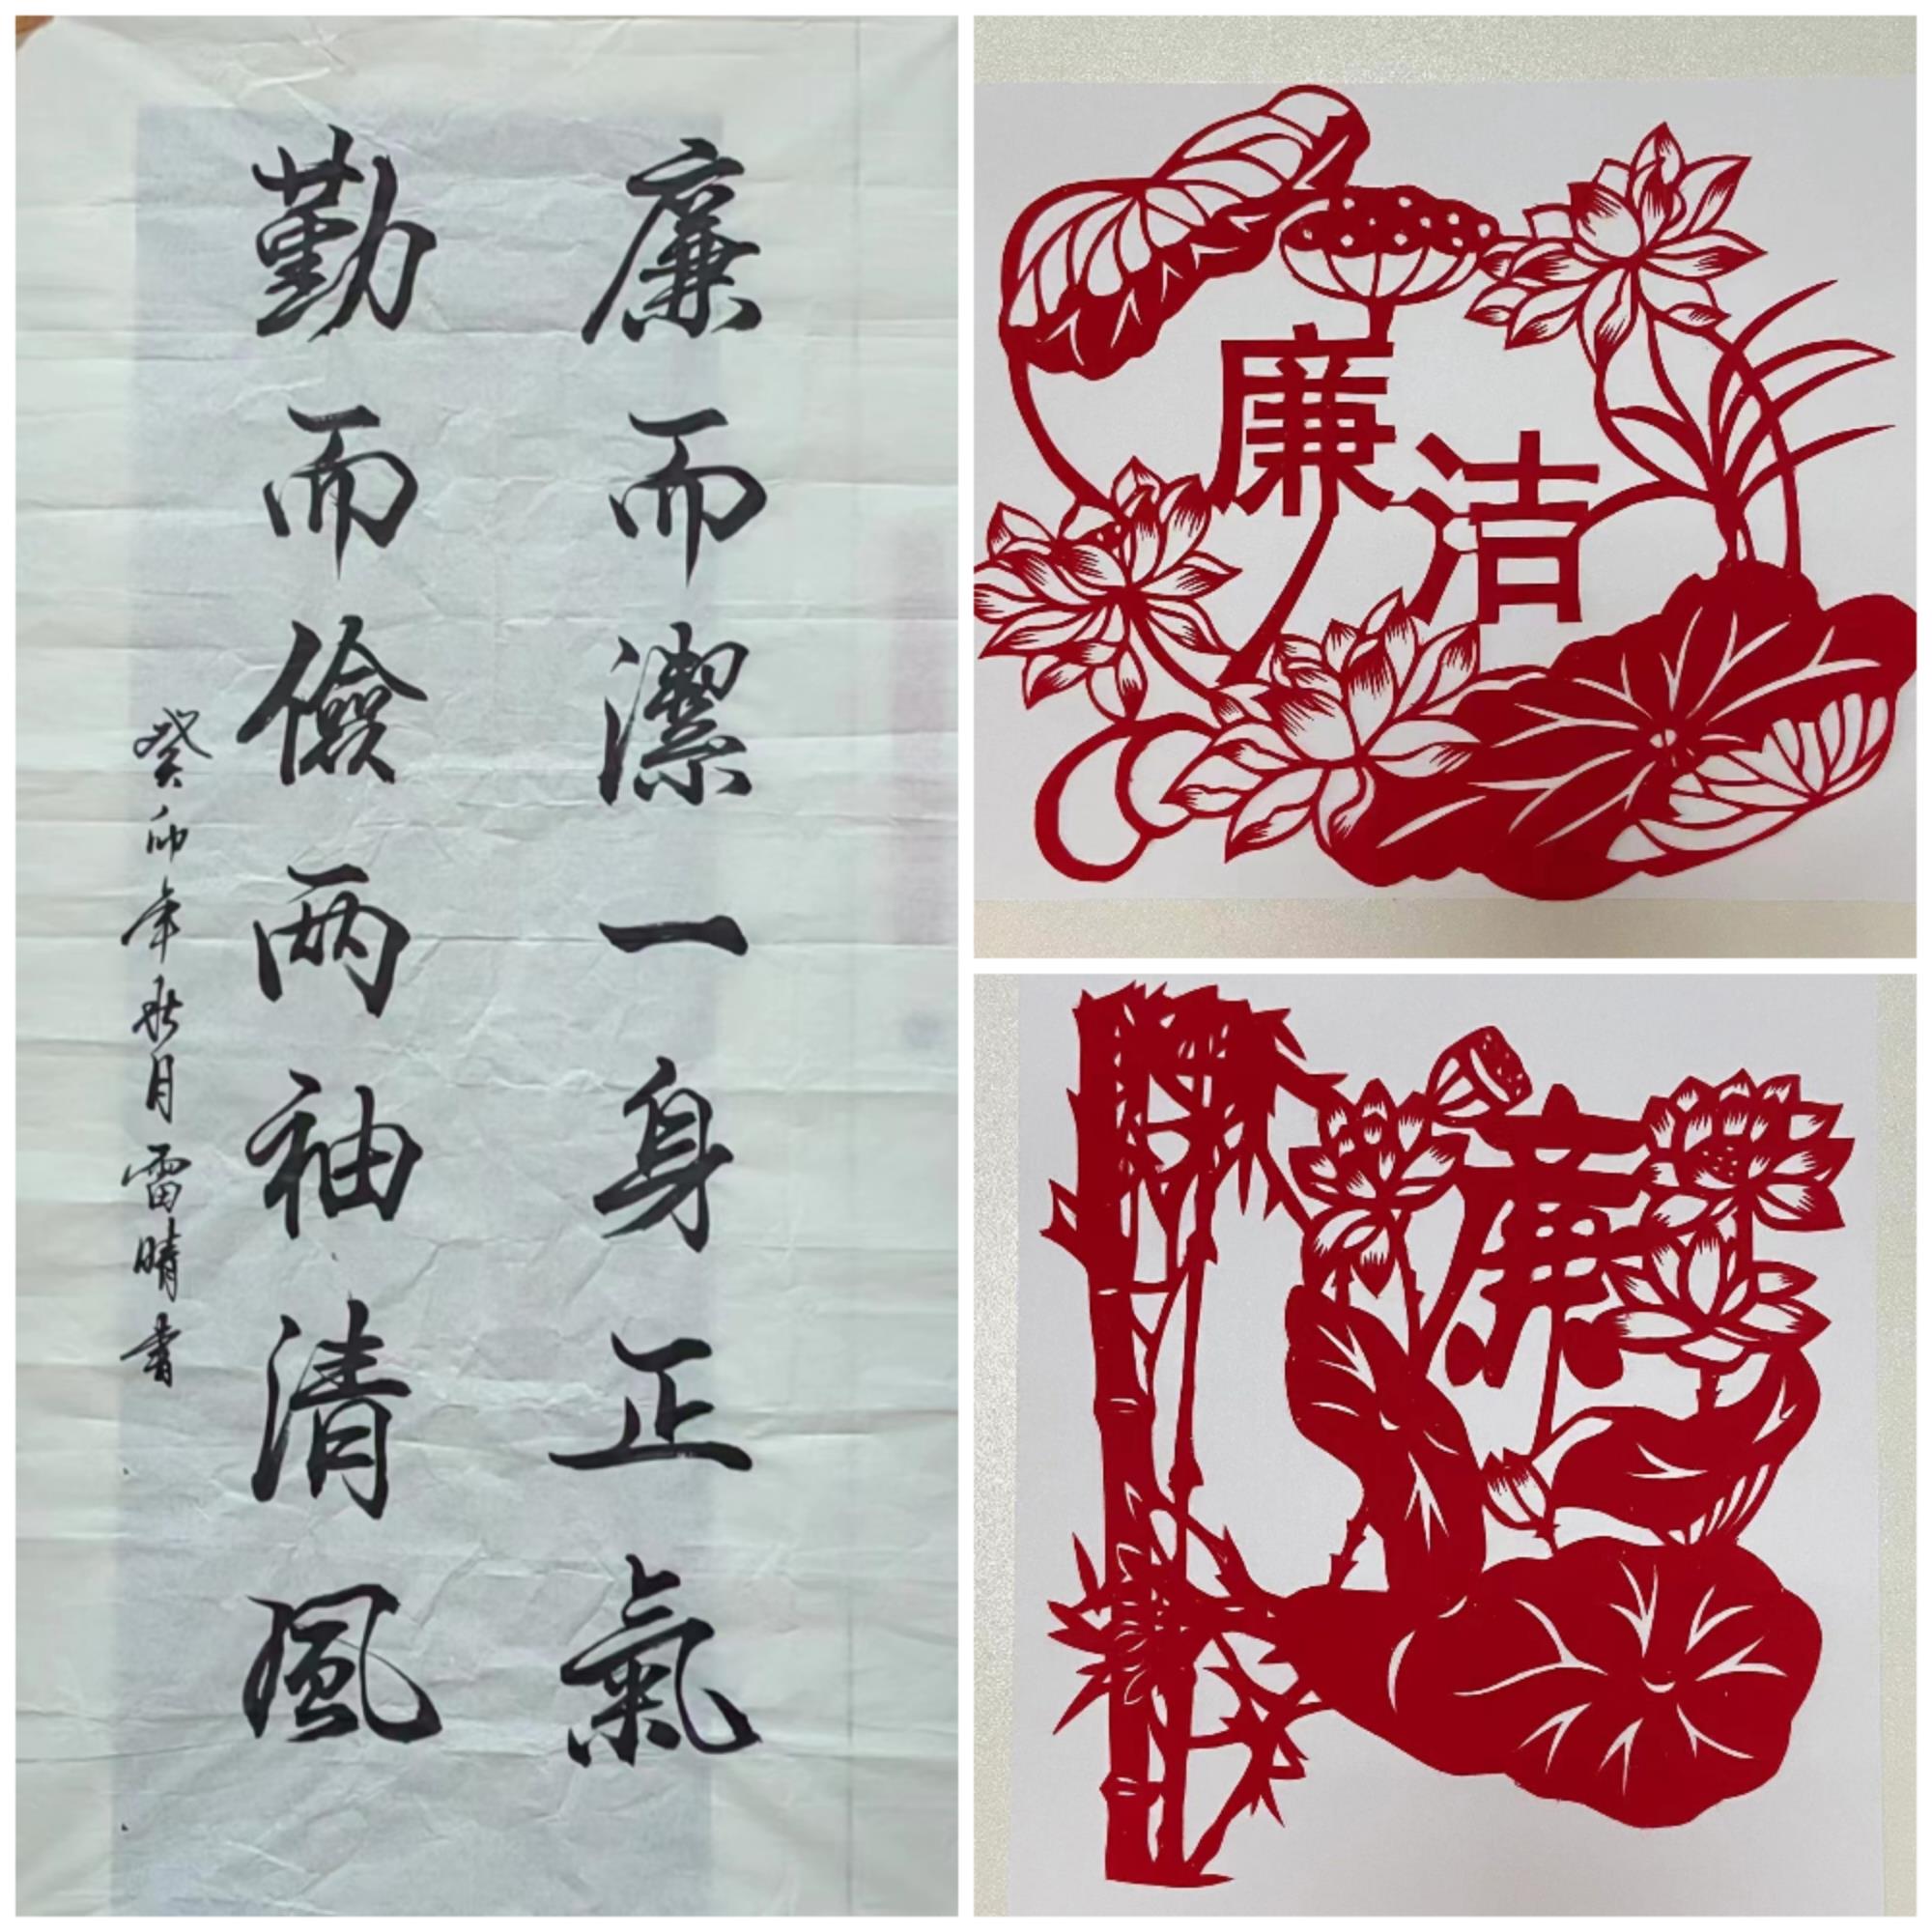 廉而潔一身正氣
勤而儉两袖清風
癸卯年秋月雷晴書
廉
洁
廉